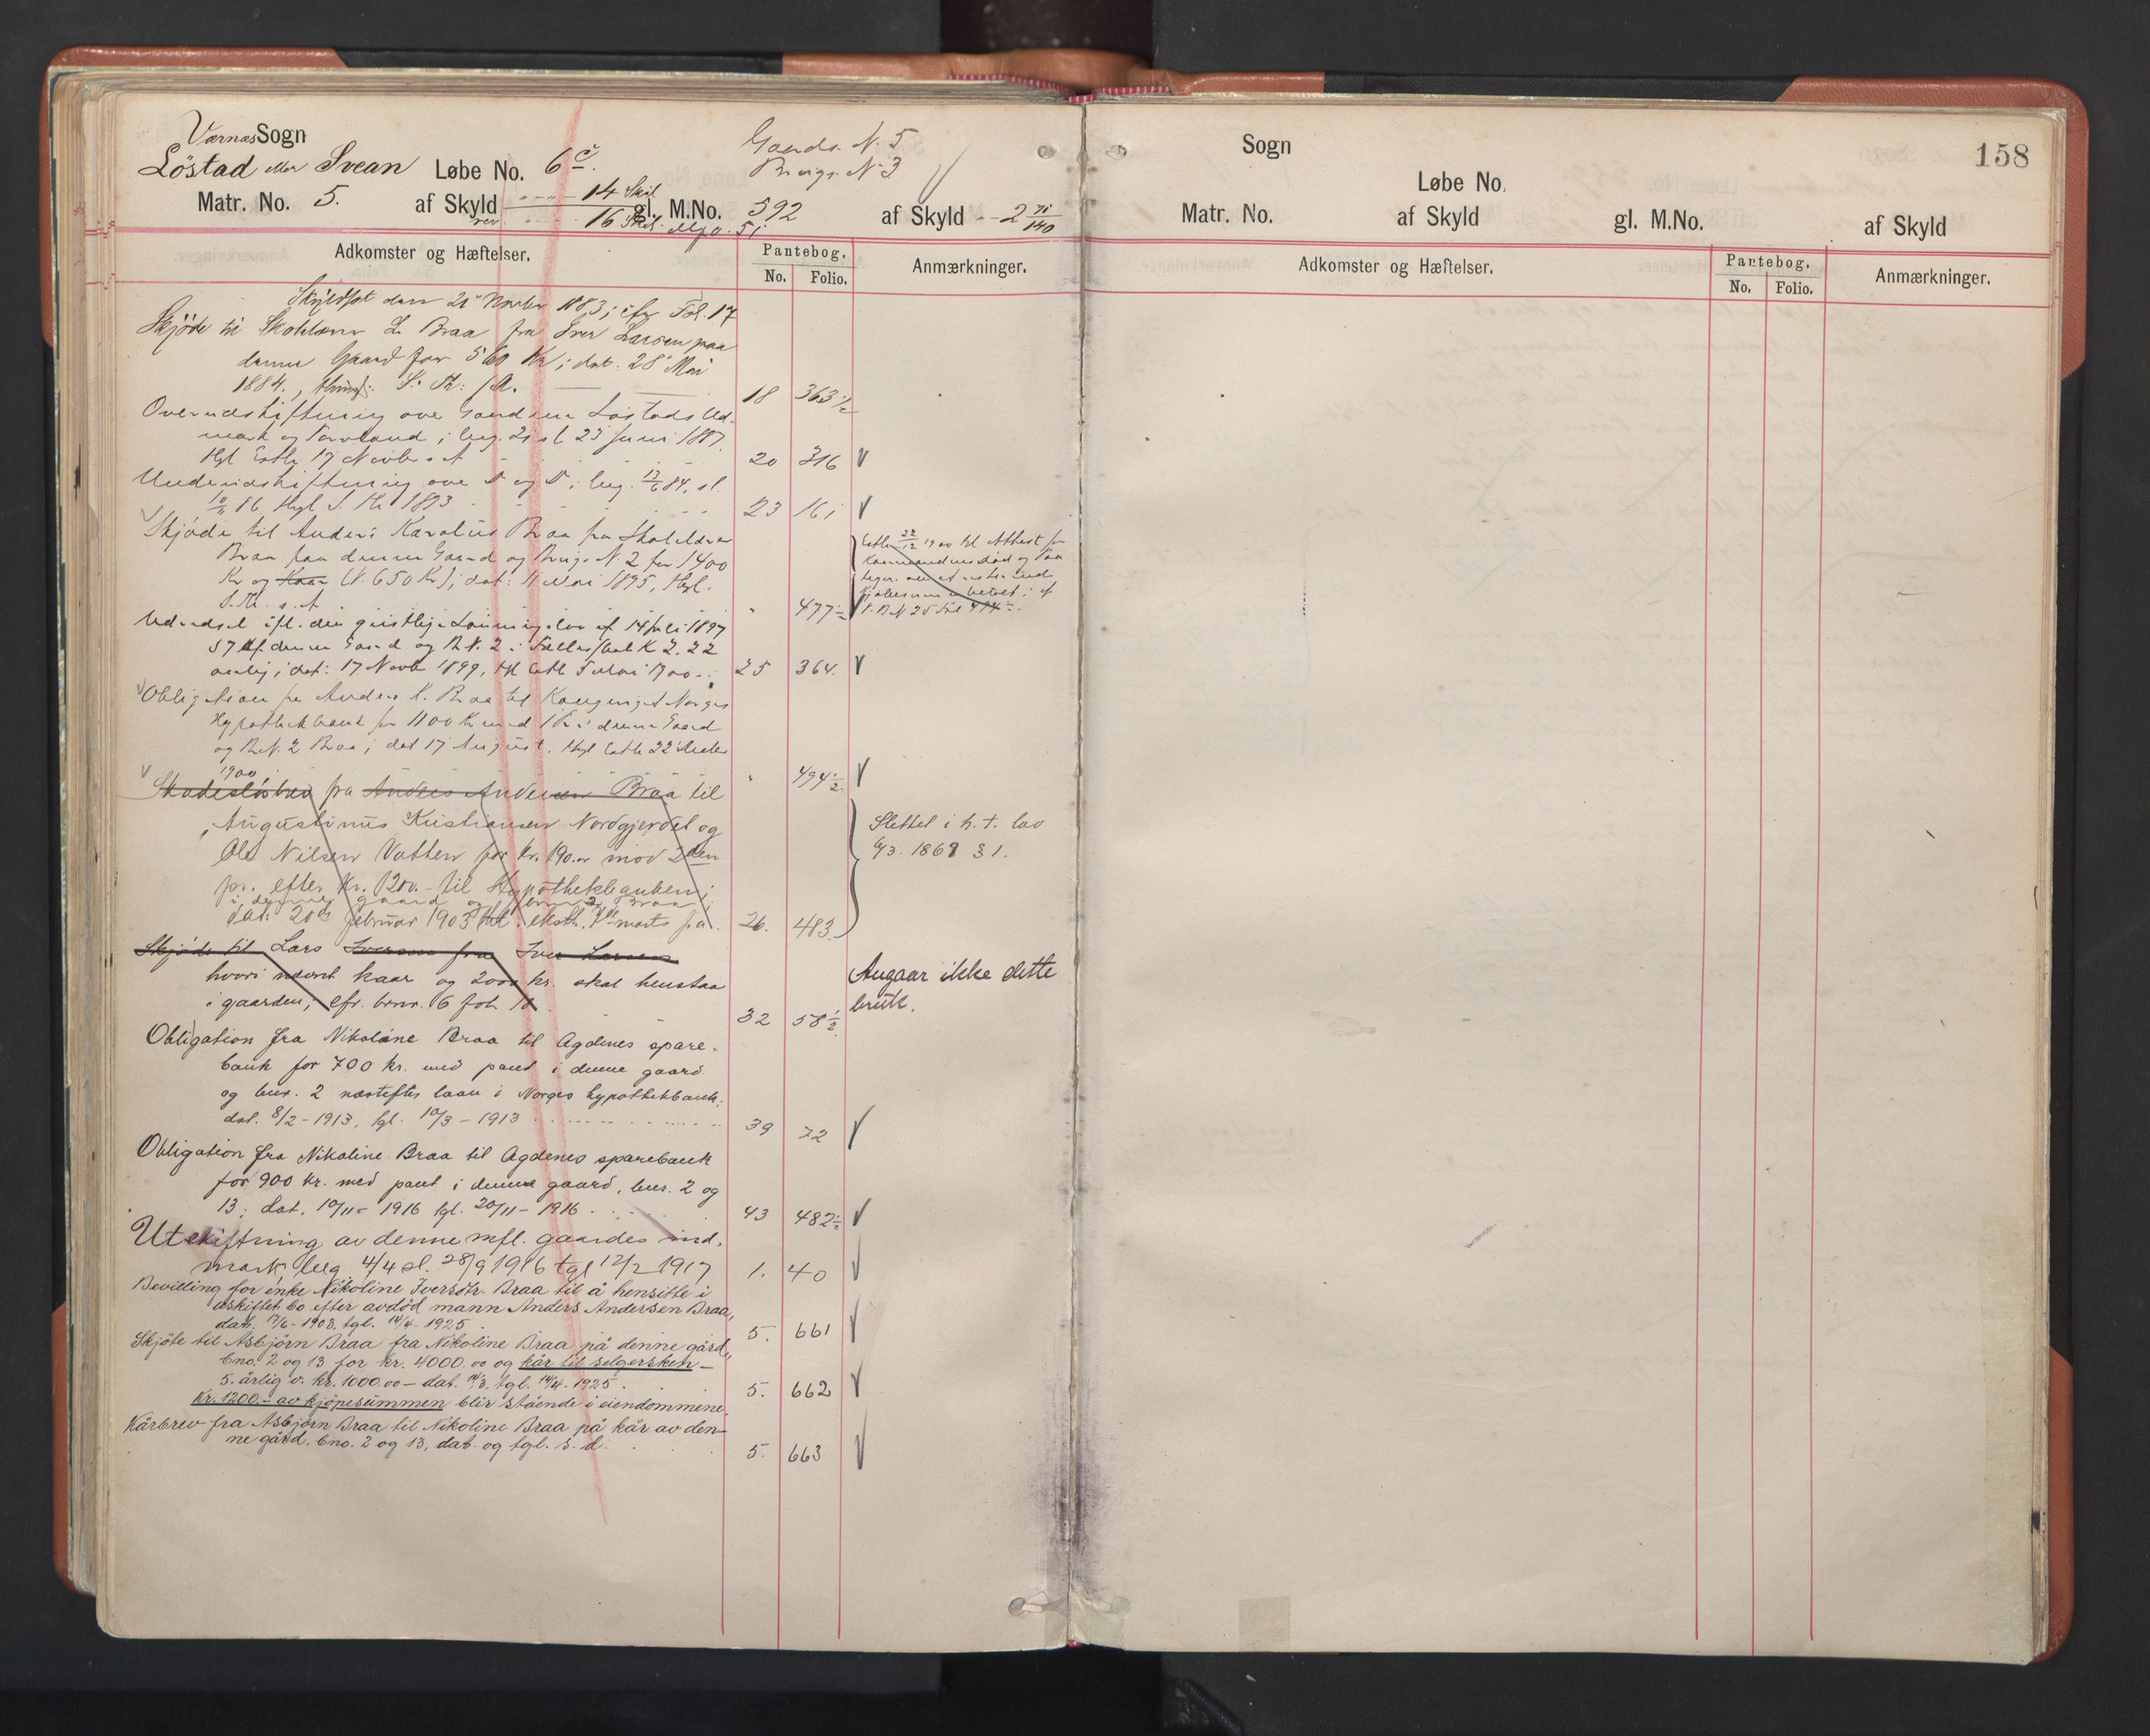 Værnes Sogn
Gaards. N. 5
Løstad eller Svean Løbe No. 6 c.
Brugs. N 3
Matr. No. 5. af Skyld 14 Skil gl. M.No. 592 af Skyld 2 71/140
rev 16 Skil.
Adkomster og Hæftelser. Pantebog. Anmærkninger.
No. Folio.
Skyldsat den 21 1883; cfr Fol. 17
Skjøde til Skolelærer L. Braa fra Iver Larsen paa
denne Gaard for 560 Kr; dat. 28 Mai
1884., S. Th: s/A. 18 363 1/2
Overudskiftning over Gaardene Løstads Ud-
mark og ; beg. 21 sl 23 Juni 1887.
Thgl Extr. 17 Novbr s. A 20 316 V
Underudskiftning over D og D; beg. 17/6 84, sl.
10/11 86, thgl S. Th 1893 23 161 V
Skjøde til Anders Karolius Braa fra Skolelærer
Braa paa denne Gaard og Brugs N. 2 for 1400
Kr og Kaar (V. 650 Kr); dat: 11 Mai 1895, thgl.
S. Th. s. A " 477 1/2 V
Extr 22/12 1900 tgl Attest for
Kaarmandens død og Paa
P. B. N 25 Fol 494 1/2.
Udredsel ifl. den geistlige Lønningslov af 14 Juli 1897
§ 7 af denne Gaard og B. N. 2 i Fællesskab K 2.22
aarlig; dat: 17 Novb 1899, thgl Extr 1900 25 364. V
Obligation fra Anders K. Braa til Kongeriget Norges
Hypothekbank for 1100 Kr med 1 Pr. i denne Gaard
og B. N. 2 Braa; dat 17 August, thgl Extr 22 Decbr
1900 " 494 1/2 V
Skadesløsbrev fra Anders Andersen Braa til
Augustinus Kristiansen Nordgjerdet og
Ole Nilsen Vatten for kr. 190.00 mod 2den
pr. efter Kr. 1200.- til Hypothekbanken;
i denne gaard og brno 2 Braa;
dat. 20de februar 1903 thl. ekstr. marts s/a. 26. 483.
Slettet i h. t. lov
1/3. 1869 § 1.
Skjøde til Lars Iversen fra Iver Larsen
hvori nævnt kaar og 2000 kr. skal henstaa
i gaarden; cfr. brnr. 6 fol. 18. 32 58 1/2
Angaar ikke dette
bruk.
Obligation fra Nikoline Braa til Agdenes spare-
bank for 700 kr. med pant i denne gaard
og bnr. 2 næstefter laan i Norges hypothekbank;
dat. 8/2 - 1913, tgl. 10/3 - 1913 39 72 V
Obligation fra Nikoline Braa til Agdenes sparebank
for 900 kr. med pant i denne gaard, bnr. 2 og
13; dat. 10/11 - 1916 tgl. 20/11 - 1916 43 482 1/2 V
Utskiftning av denne mfl. gaardes ind-
mark, beg 4/4 sl. 28/9 1916 tgl 12/2 1917 1. 40 V
Bevilling for enke Nikoline Iversdtr. Braa til å hensitte i
uskiftet bo efter avdød mann Anders Andersen Braa,
dat. 17/6 - 1908, tgl. 14/4 - 1925. 5. 661 V
Skjøte til Asbjørn Braa fra Nikoline Braa på denne gård,
bno. 2 og 13 for kr. 4000.00 og kår til selgersken -
5. årlig v. kr. 1000.00 - dat. 14/3, tgl. 14/4 - 1925. 5. 662 V
Kr. 1200.- av kjøpesummen blir stående i eiendommene.
Kårbrev fra Asbjørn Braa til Nikoline Braa på kår av den-
ne gård, bno. 2 og 13, dat. og tgl. s. d. 5. 663 V
158
Sogn
Løbe No.
Matr. No. af Skyld gl. M.No. af Skyld
Adkomster og Hæftelser. Pantebog. Anmærkninger.
No. Folio.